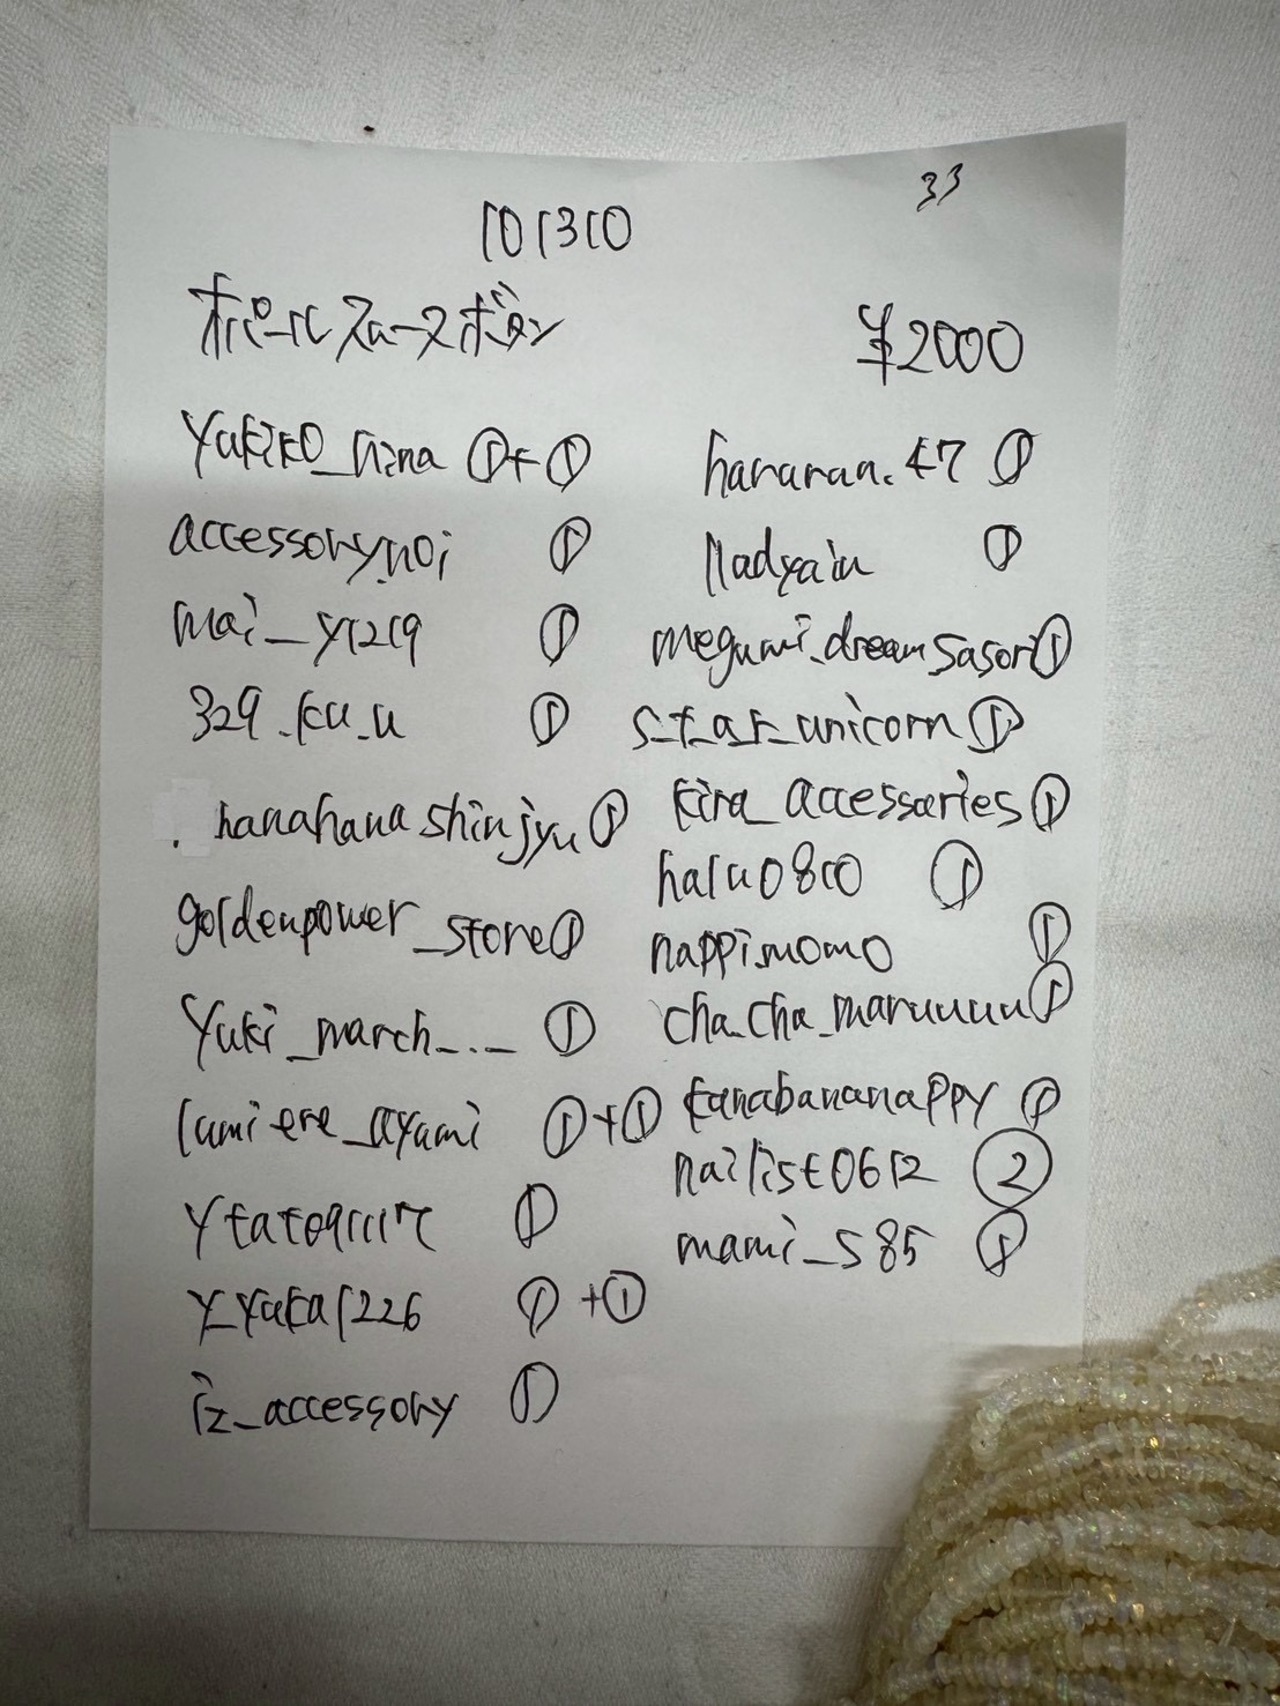 33
101310
オパールスムースボタン ¥2000
yukiko_hina ①+①
accessory.noi ①
mai_y1219 ①
329.ku_u ①
. hanahanashinjyu ①
goldenpower_store ①
yuki_march_._ ①
lumiere_ayami ①+①
①
y_yuka1226 ①+①
iz_accessory ①
hanaraa.47 ①
①
megumi.dreamsasori ①
s_t_a_r_unicorn ①
kira_accessories ①
halu0810 ①
nappi.momo ①
cha_cha_maruuuu ①
kanabananappy ①
nailist0612 ②
mami_s85 ①